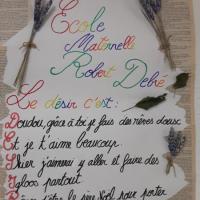 Ecole
Maternelle
Robert Debré
Le désir c'est :
Doudou, grâce à toi je fais des rêves doux
Et je t'aime beaucoup.
j'aimerais y aller et faire des
igloos partout
le père Noël pour porter